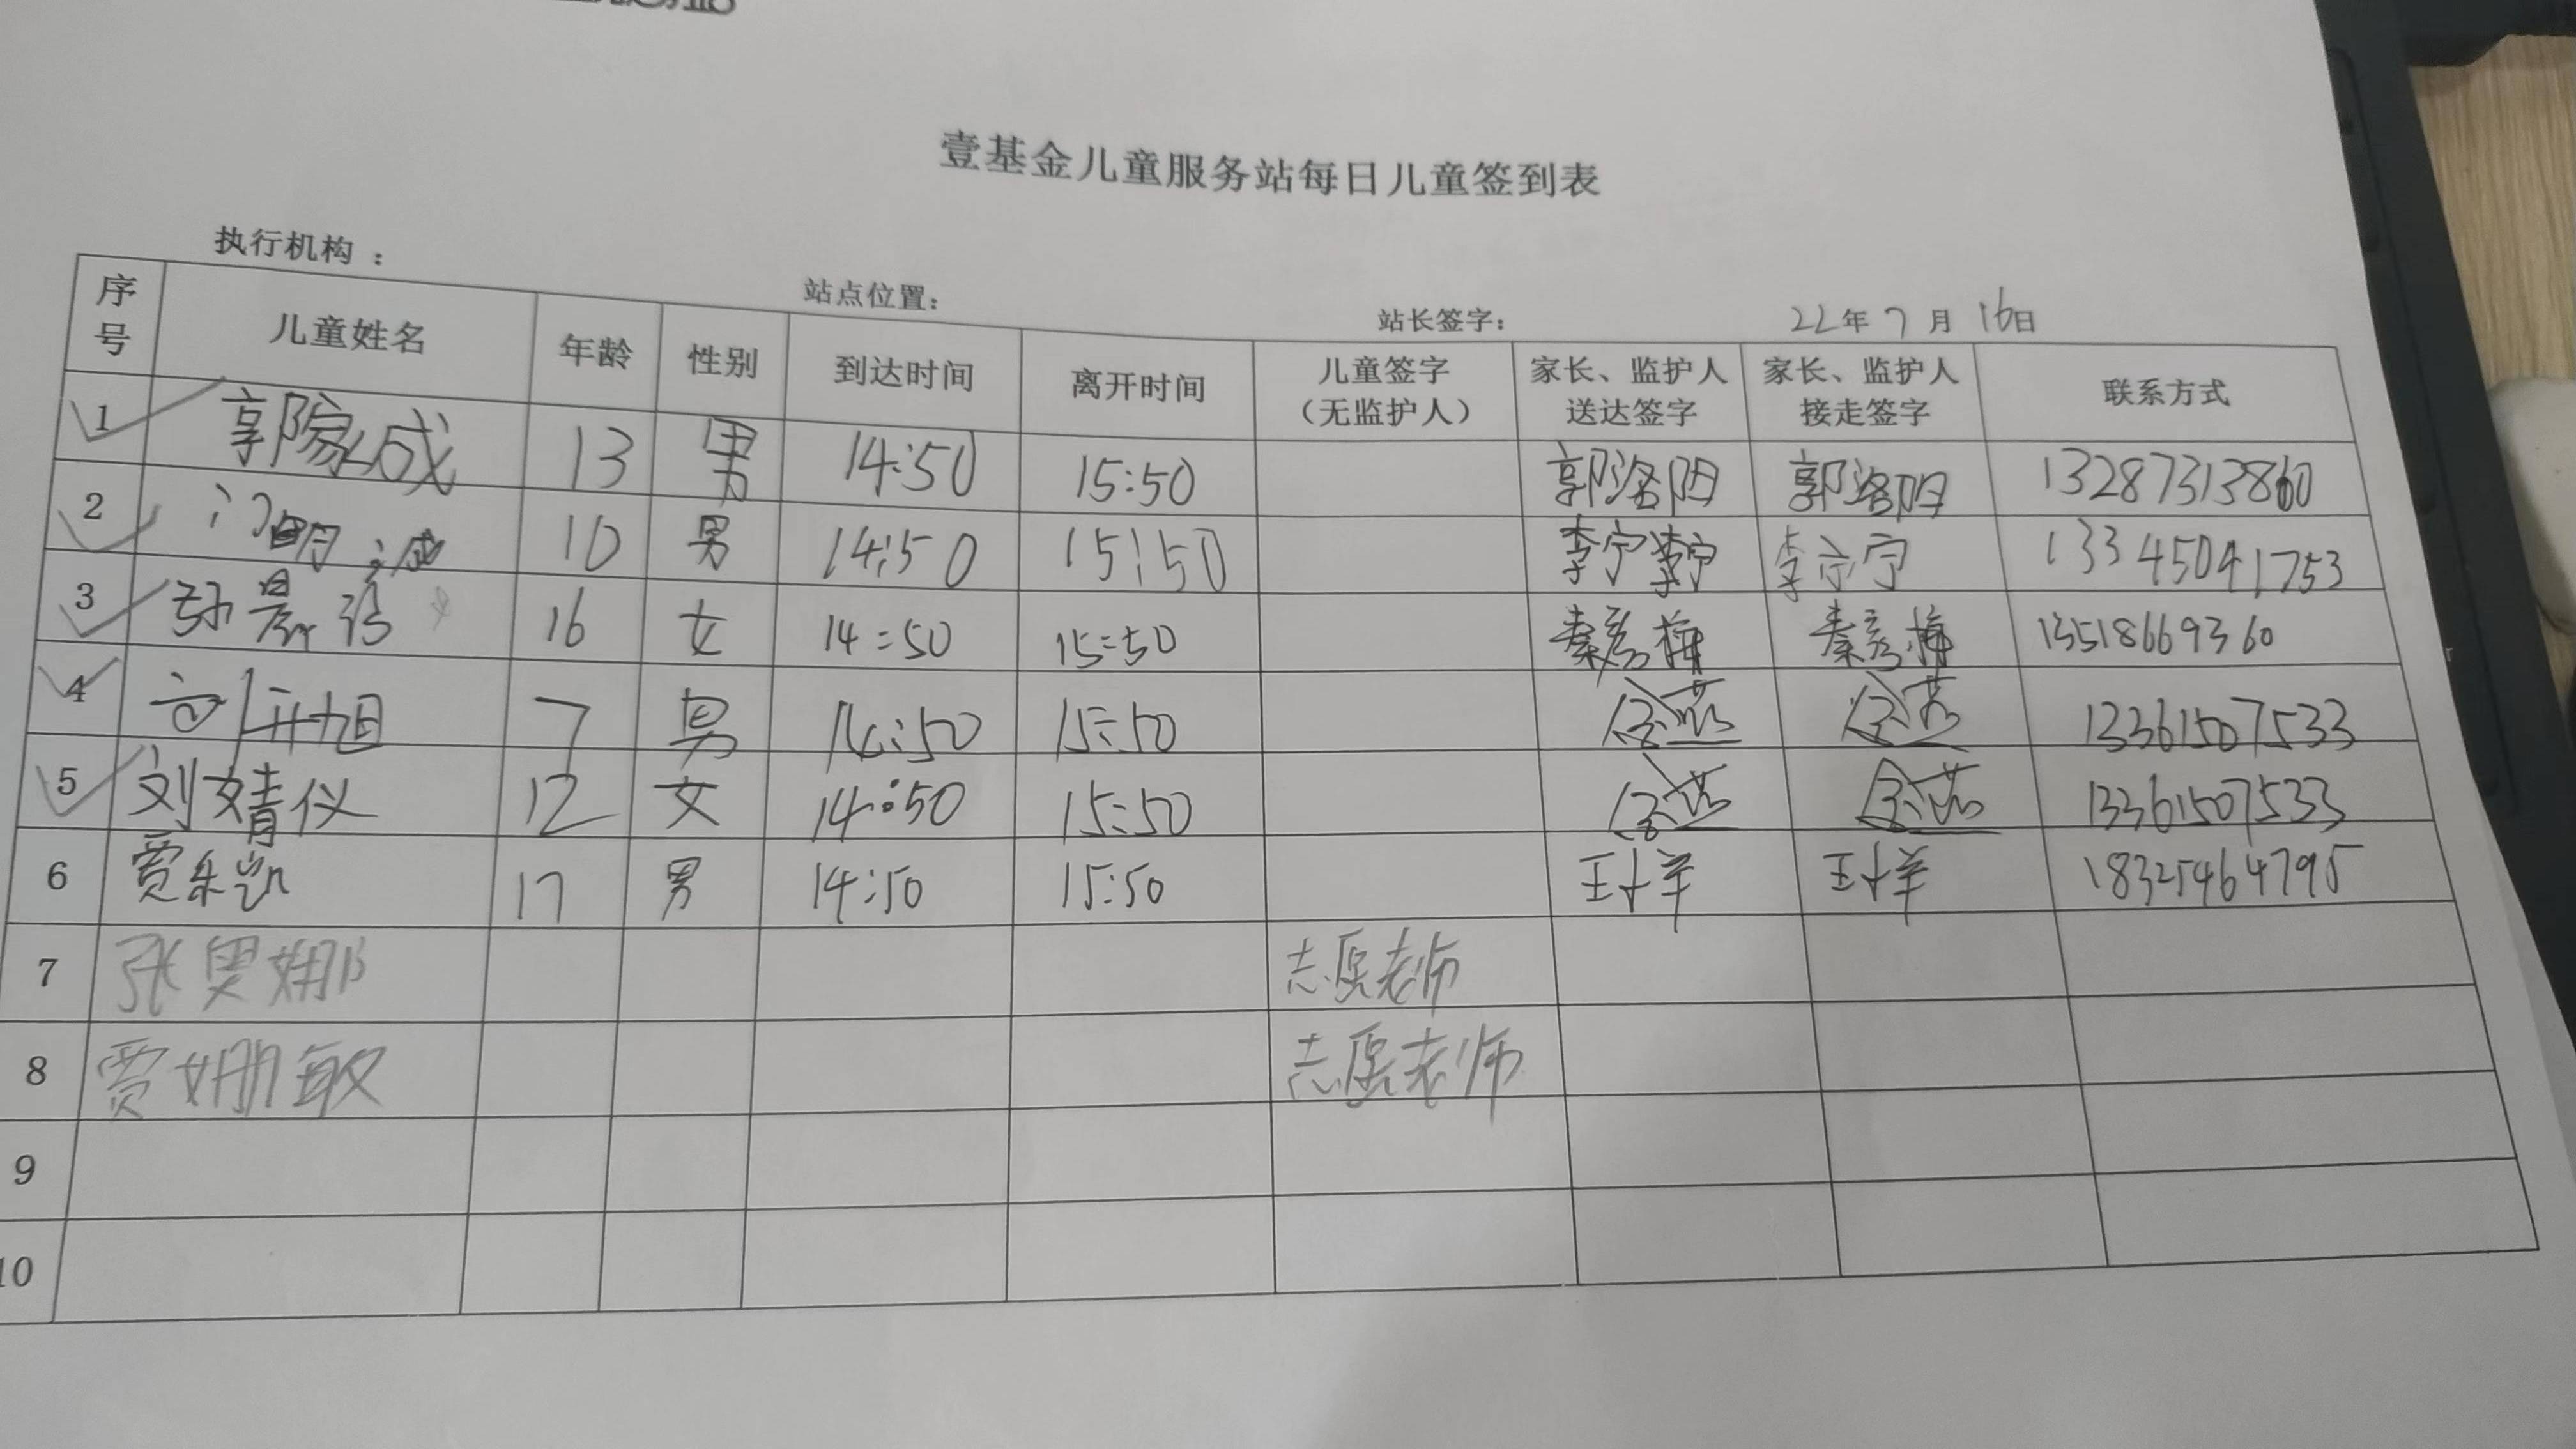 壹基金儿童服务站每日儿童签到表
执行机构：
站点位置：
站长签字：
22年7月16日
序号 儿童姓名 年龄 性别 到达时间 离开时间 儿童签字（无监护人） 家长、监护人送达签字 家长、监护人接走签字 联系方式
1 郭家成 13 男 14:50 15:50 郭洛阳 郭洛阳 13287313860
2 10 男 14:50 15:50 李宁 李宁 李宁 13345041753
3 16 女 14:50 15:50 秦彦梅 秦彦梅 13518669360
4 7 男 14:50 15:50 13361507533
5 刘婧仪 12 女 14:50 15:50 13361507533
6 贾乐凯 17 男 14:50 15:50 18325464795
7 张 娜 志愿老师
8 贾姗敏 志愿老师
9
10